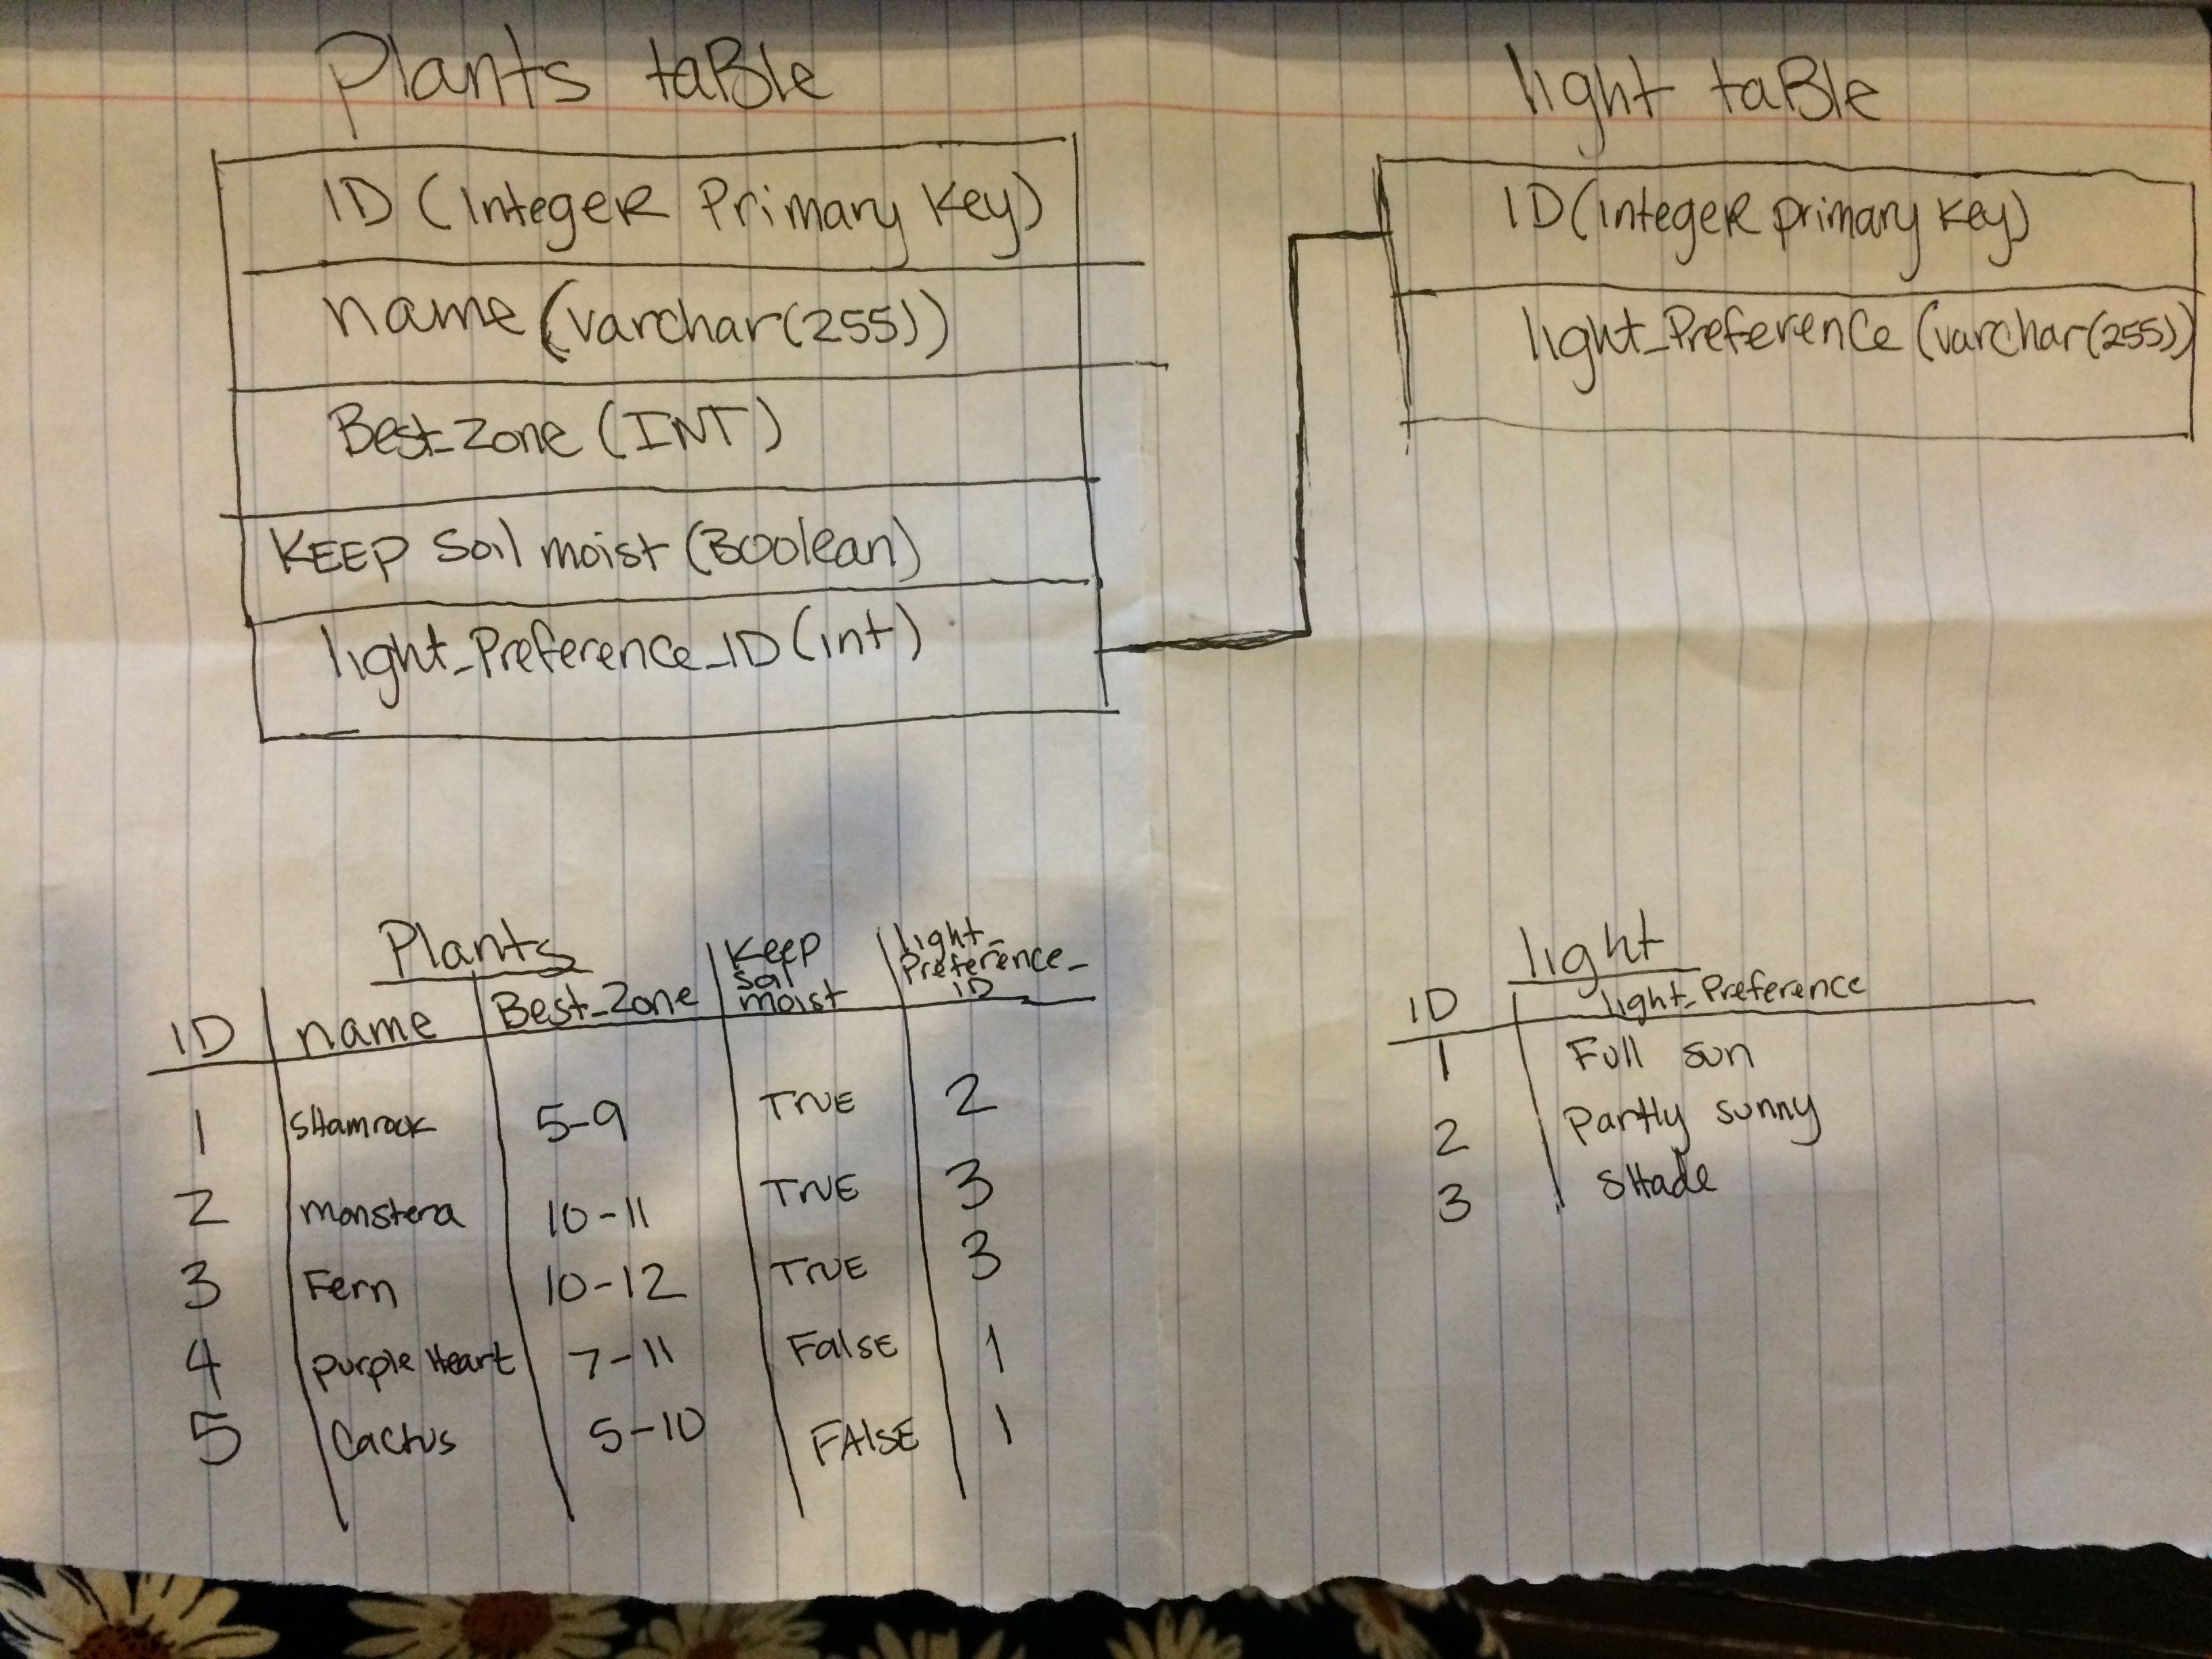 Plants taBle
ID (IntegeR Primary Key)
name (varchar(255))
Best_Zone (INT)
KEEP soil moist (BOOlean)
light_Preference_ID (int)
light taBle
ID (integeR primary Key)
light_Preference (varchar(255))
Plants
ID name Best_Zone Keep soil moist light_Preference_ID
1 sHamrock 5-9 TruE 2
2 monstera 10-11 TruE 3
3 Fern 10-12 TruE 3
4 purple Heart 7-11 FalsE 1
5 Cactus 5-10 FAlsE 1
light
ID light_Preference
1 Full sun
2 Partly sunny
3 sHade